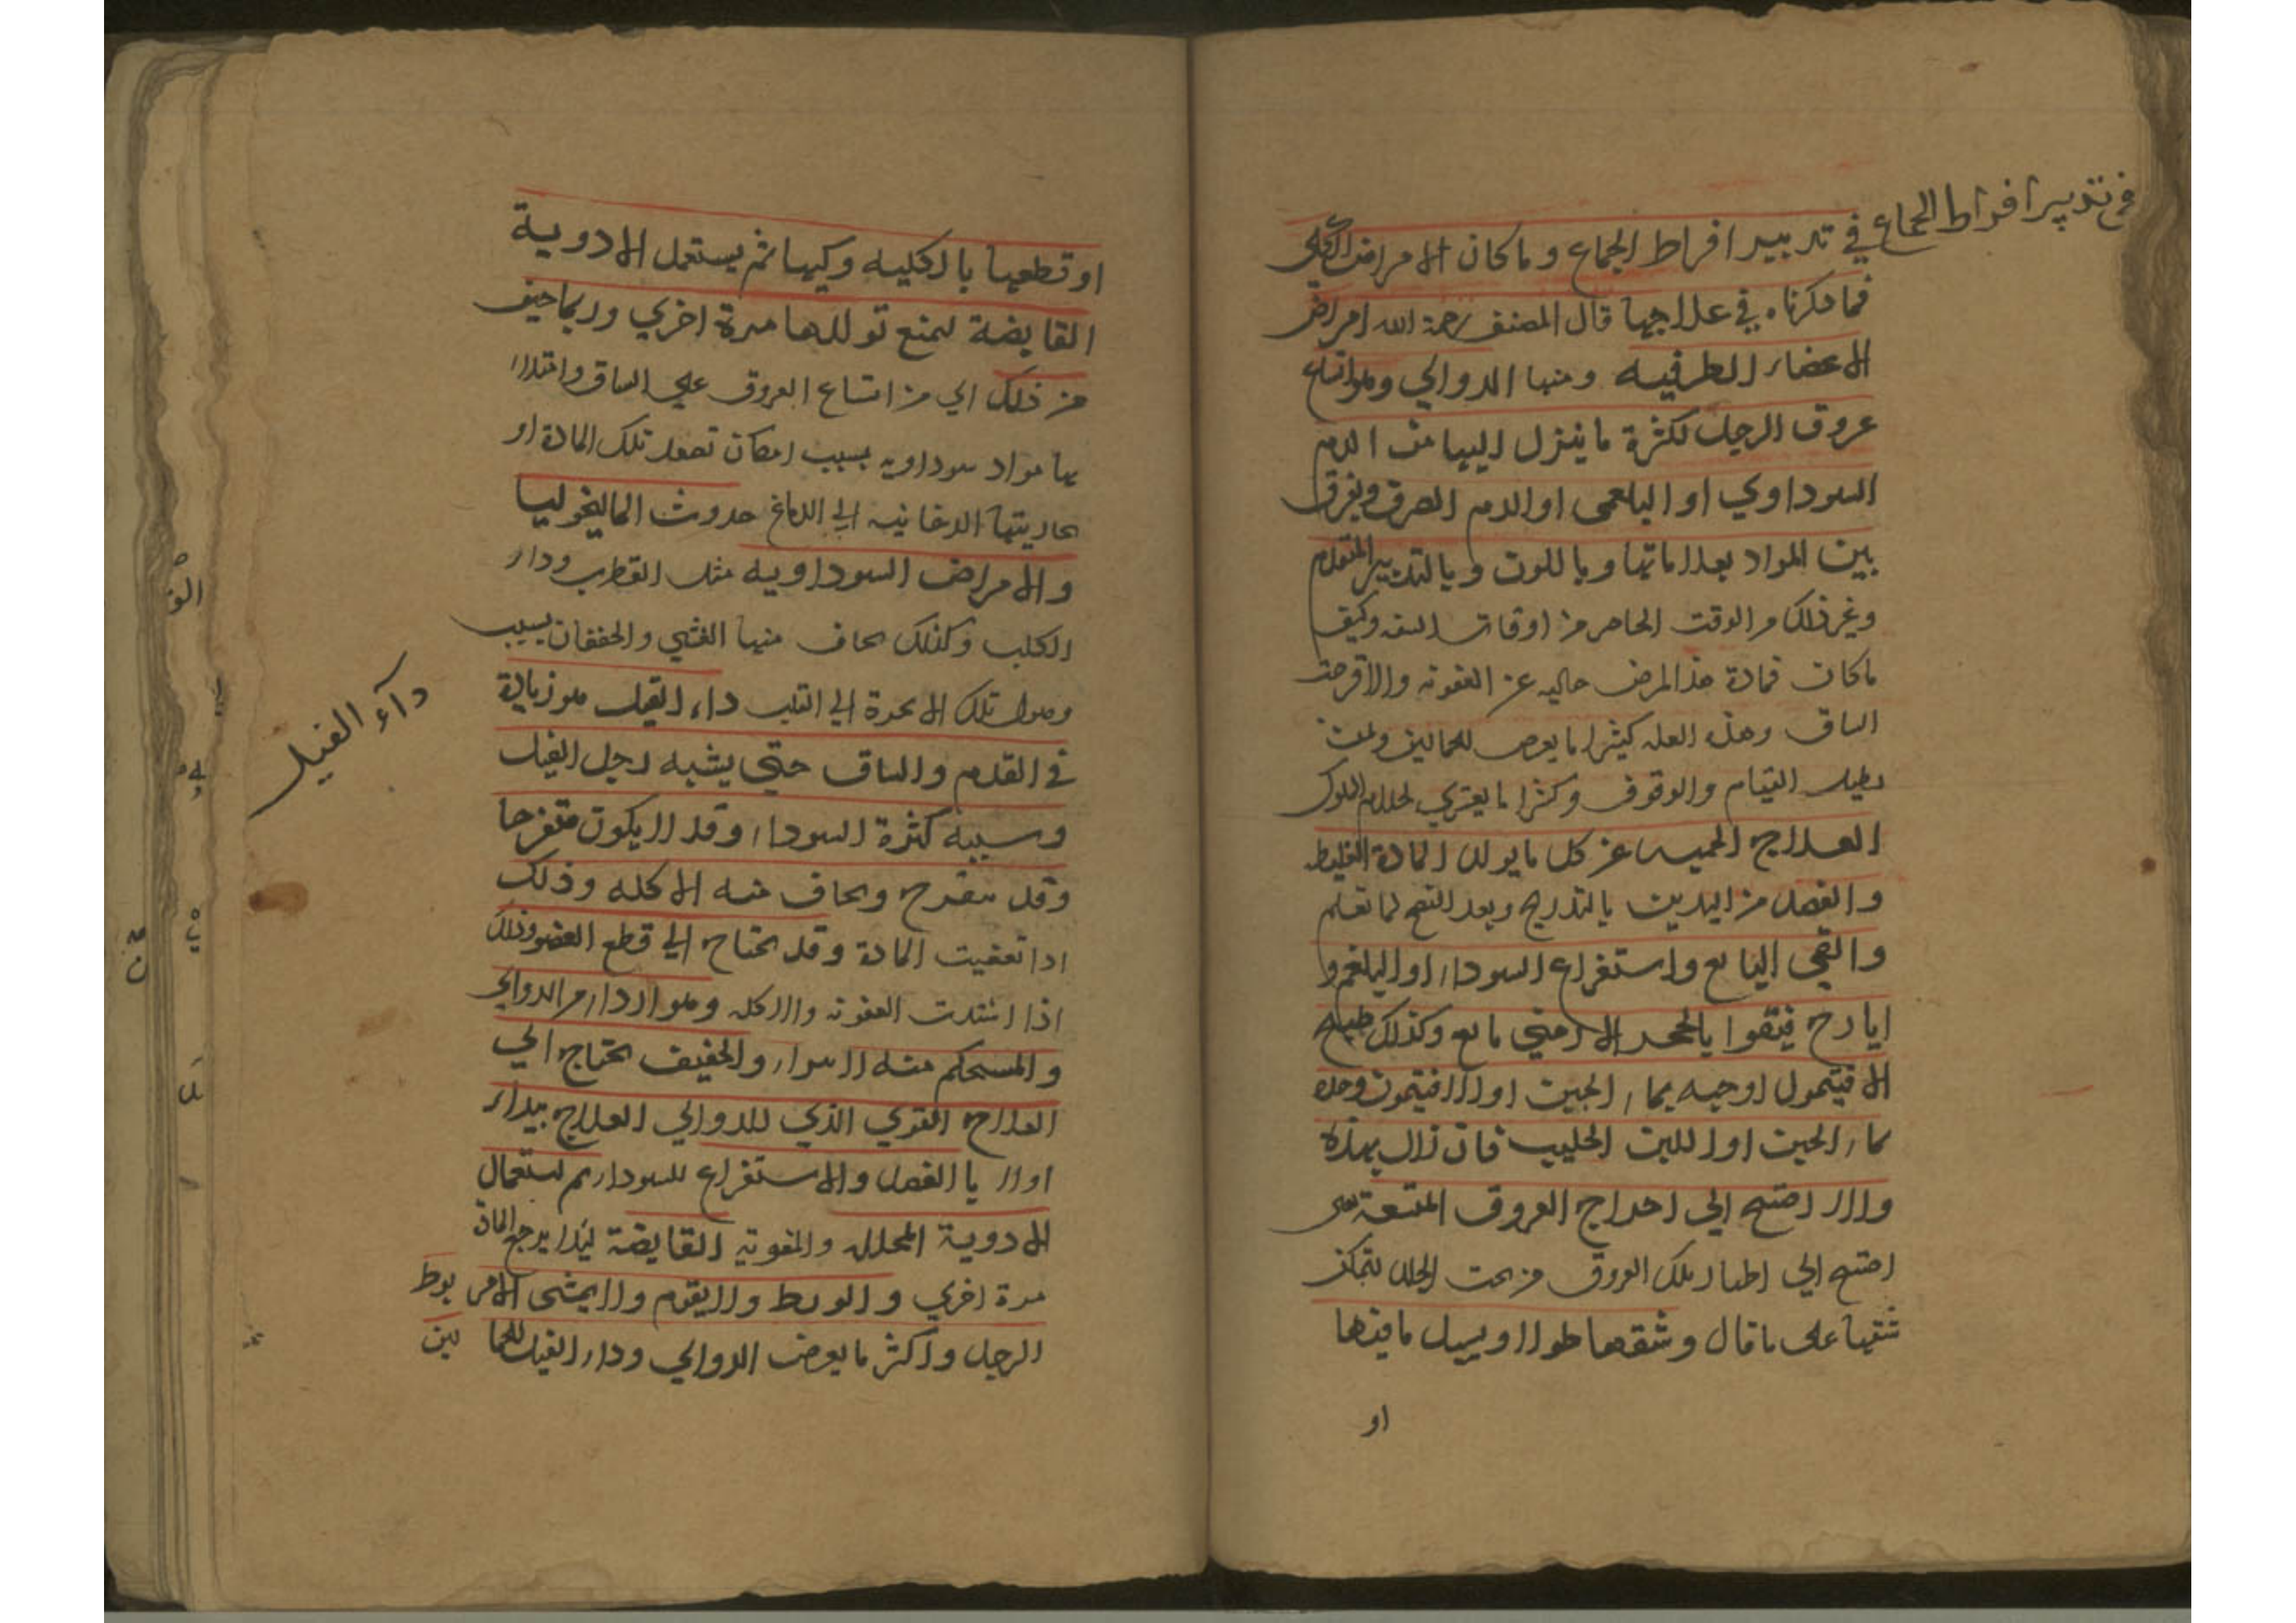 في تدبير افراط الجماع
في تدبير افراط الجماع وما كان الامراض الكلي
فما ذكرناه في علاجها قال المصنف رحمة الله امراض
الاعضاء الطرفيه ومنها الدوالي وهو اتساع
عروق الرجل لكثرة ما ينزل اليها من الدم
السوداوي او البلغمي او الدم الصرف ويفرق
بين المواد بعلاماتها وباللون وبالتدبير المتقدم
وغير ذلك من الوقت الحاضر من اوقات السنه وكيف
ما كان فمادة هذا المرض خاليه عن العفونه والا قرحت
الساق وهذه العله كثيرا ما يعرض للحمالين ولمن
يطيل القيام والوقوف وكثيرا ما يعتري لخدام الملوك
العلاج الحميه عن كل ما يولد المادة الغليظه
والفصد من اليدين بالتدريج وبعد النضج لما تعلم
والقي البالغ واستفراغ السوداء او البلغم و
ايارج فيقوا بالحجر الارمني بالغ وكذلك طبيخ
الافيتمول او حبه بماء الجبن او الافتيمون وحده
بماء الجبن او اللبن الحليب فان زال بهذه
والا احتيج الي اخراج العروق المتسعة
احتيج الي اظهار تلك العروق من تحت الجلد ليتمكن
شقها على ما قال وشقها طولا ويسيل ما فيها
او
او قطعها بالكليه وكيها ثم يستعمل الادوية
القابضة لتمنع تولدها مرة اخري وربما خيف
من ذلك اي من اتساع العروق علي الساق وامتلا
بها مواد سوداويه بسبب امكان تصعد تلك المادة او
بخاريتها الدخانيه الي الدماغ حدوث الماليخوليا
والامراض السوداويه مثل القطرب وداء
الكلب وكذلك يخاف منها الغشي والخفقان بسبب
وصول تلك الابخرة الي القلب داء الفيل هو زيادة
في القدم والساق حتي يشبه رجل الفيل
وسببه كثرة السوداء وقد لا يكون متقرحا
وقد يتقرح ويخاف منه الاكله وذلك
اذا تعفنت المادة وقد يحتاج الي قطع العضو وذلك
اذا اشتدت العفونه والاكله وهو اردا من الدوالي
والمستحكم منه لا يبرا والخفيف يحتاج الي
العلاج القوي الذي للدوالي العلاج يبداء
اولا بالفصد والاستفراغ للسوداء ثم استعمال
الادوية المحلله والمقويه القابضة ليلا يرجع المادة
مرة اخري والربط ولا يقوم ولا يمشي الا مربوط
الرجل واكثر ما يعرض الدوالي وداء الفيل للحمالين
داء الفيل